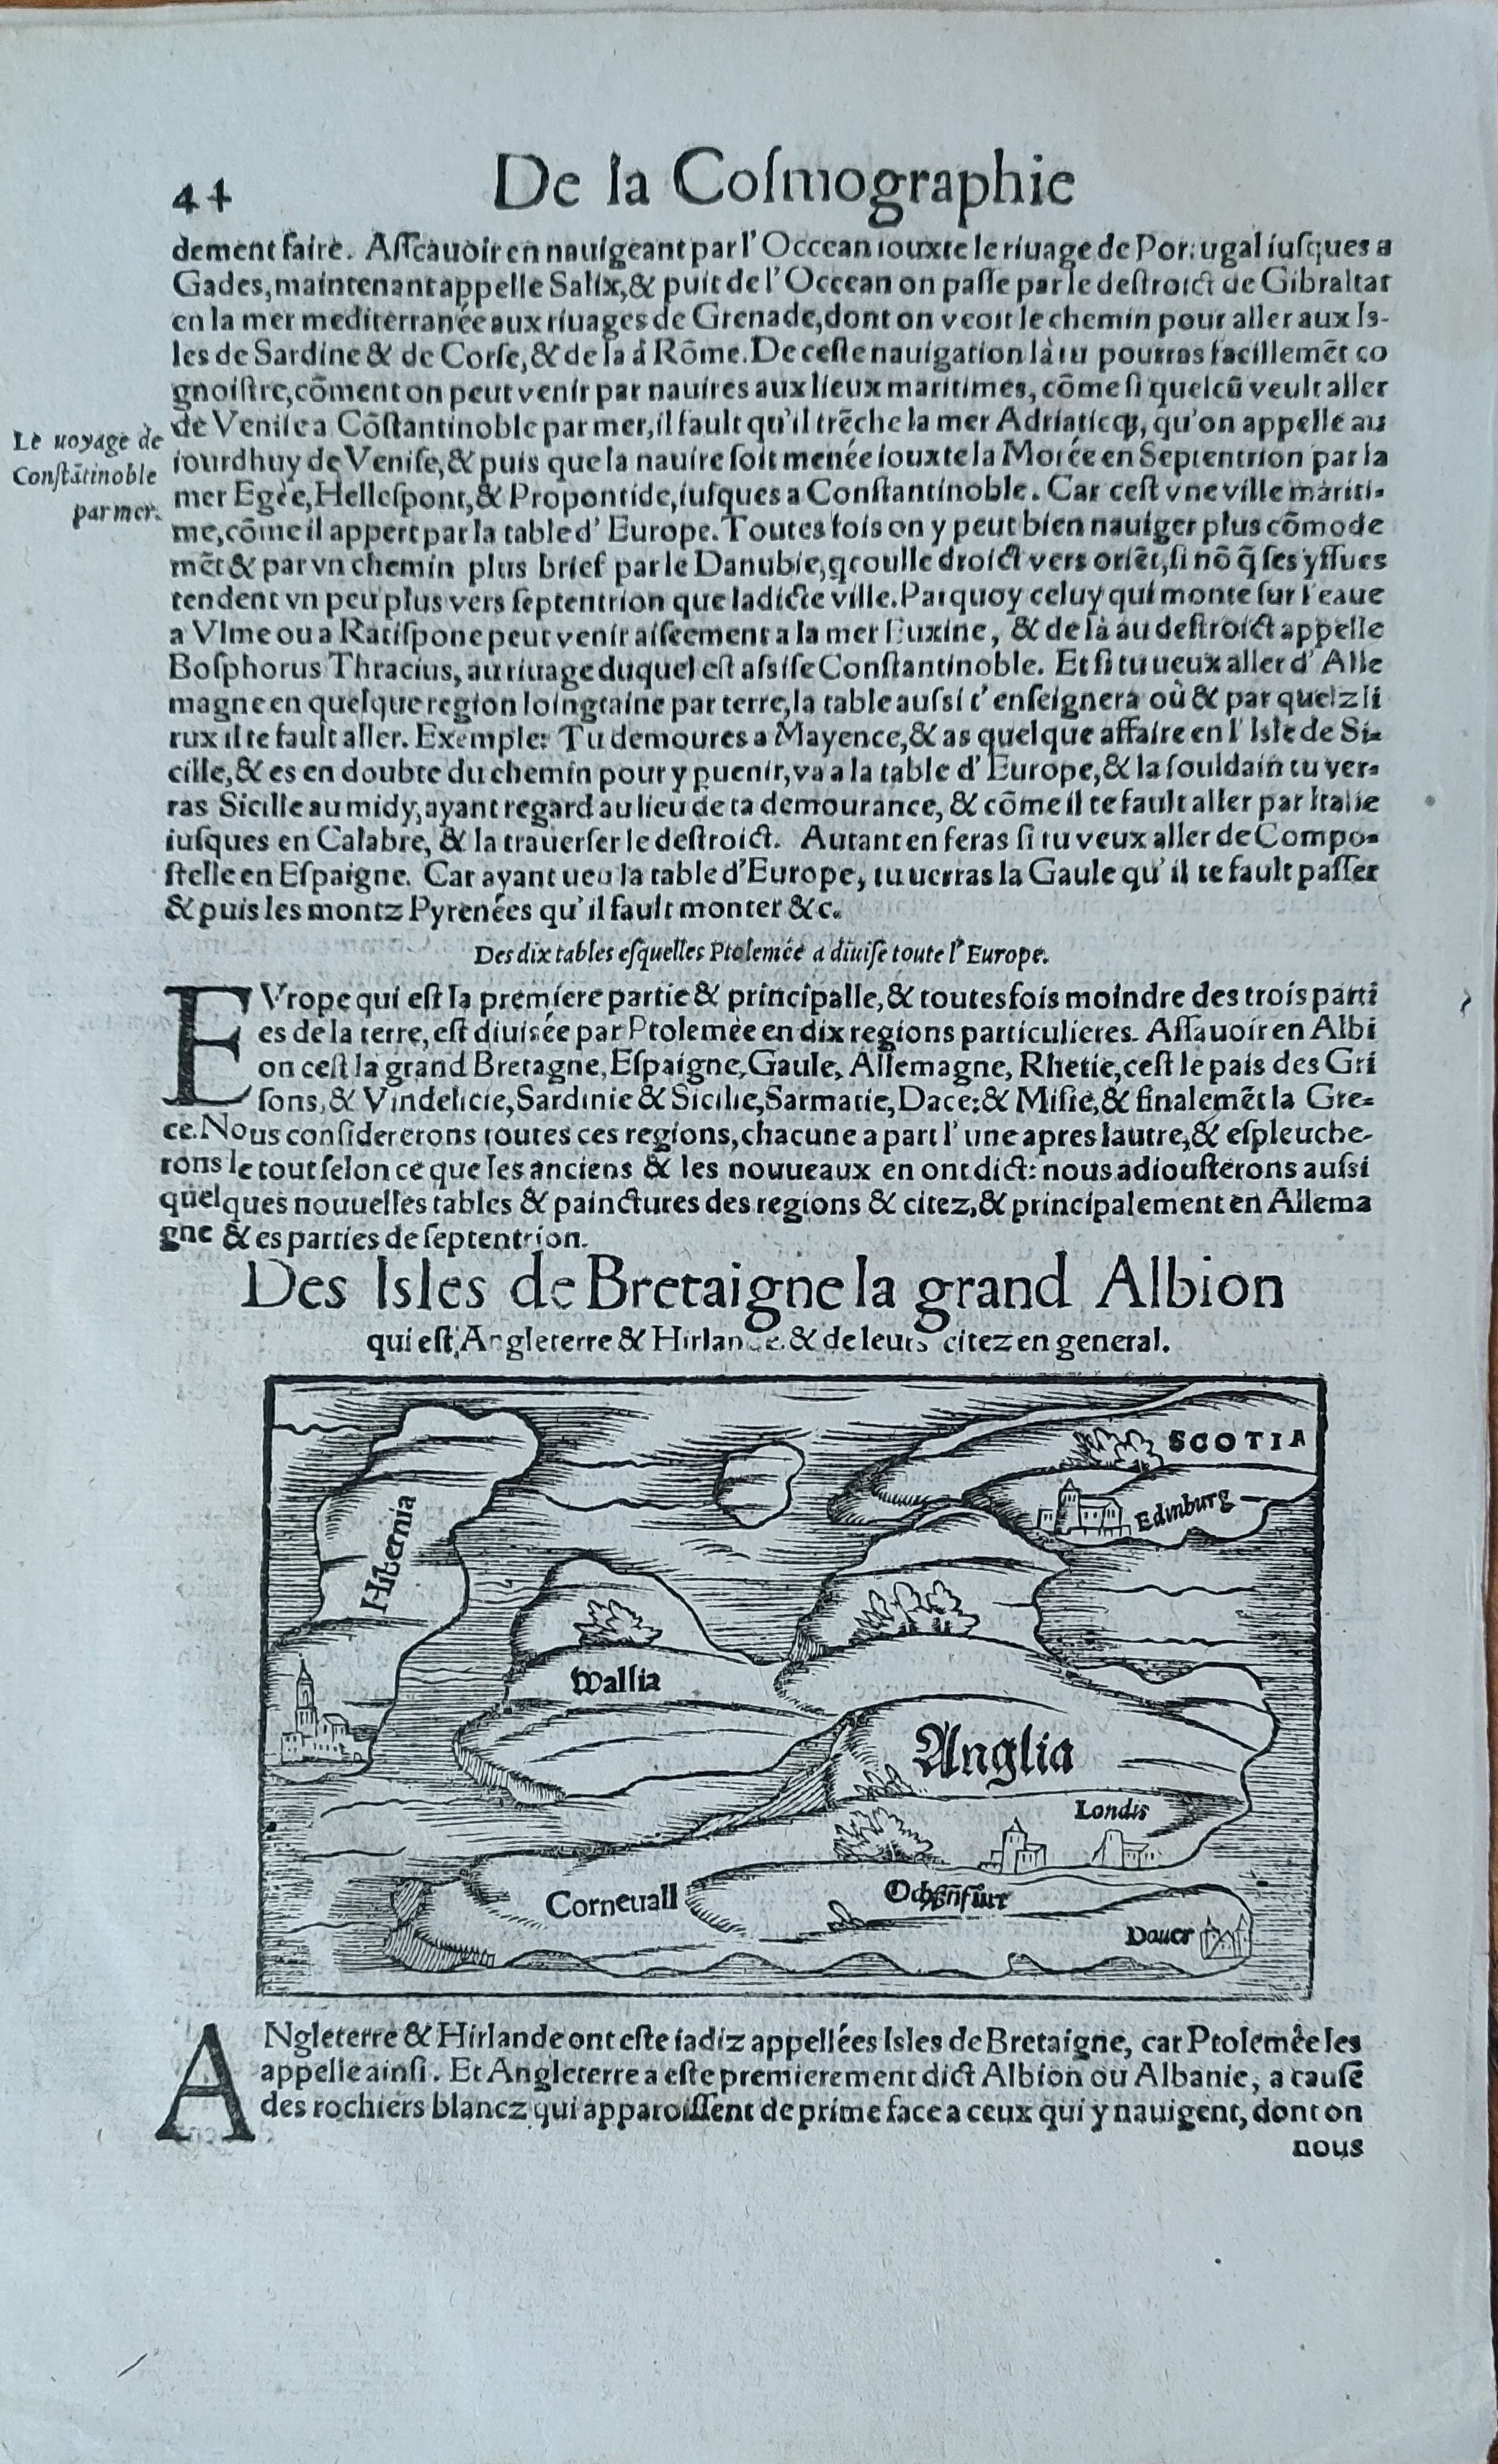 44
De la Coſmographie
dement faire. Aſſcauoir en nauigeant par l'Occean iouxte le riuage de Portugal iuſques a
Gades, maintenant appelle Salix, & puit de l'Occean on paſſe par le deſtroict de Gibraltar
en la mer mediterranée aux riuages de Grenade, dont on veoit le chemin pour aller aux Iſ-
les de Sardine & de Corſe, & de la á Rõme. De ceſte nauigation là tu pourras facillemẽt co
gnoiſtre, cõment on peut venir par nauires aux lieux maritimes, cõme ſi quelcũ veult aller
de Veniſe a Cõſtantinoble par mer, il fault qu'il trẽche la mer Adriáticq̃, qu'on appelle au
iourdhuy de Veniſe, & puis que la nauire ſoit menée iouxte la Morée en Septentrion par la
mer Egèe, Helleſpont, & Propontide, iuſques a Conſtantinoble. Car ceſt vne ville mariti-
me, cõme il appert par la table d'Europe. Toutesfois on y peut bien nauiger plus cõmode
mẽt & par vn chemin plus brief par le Danubie, q coulle droict vers oriẽt, ſi nõ q̃ ſes yſſues
tendent vn peu plus vers ſeptentrion que ladicte ville. Parquoy celuy qui monte ſur l'eaue
a Vlme ou a Ratiſpone peut venir aiſeement a la mer Euxine, & de là au deſtroict appelle
Boſphorus Thracius, au riuage duquel eſt aſsiſe Conſtantinoble. Et ſi tu ueux aller d'Alle
magne en quelque region loingtaine par terre, la table auſsi t'enſeignera où & par quelz li
rux il te fault aller. Exemple: Tu demoures a Mayence, & as quelque affaire en l'Isle de Si-
cille, & es en doubte du chemin pour y puenir, va a la table d'Europe, & la ſouldain tu ver-
ras Sicille au midy, ayant regard au lieu de ta demourance, & cõme il te fault aller par Italie
iuſques en Calabre, & la trauerſer le deſtroict. Autant en feras ſi tu veux aller de Compo-
ſtelle en Eſpaigne. Car ayant ueu la table d'Europe, tu uerras la Gaule qu'il te fault paſſer
& puis les montz Pyrenées qu'il fault monter &c.
Le uoyage de
Conſtãtinoble
par mer.
Des dix tables eſquelles Ptolemée a diuiſe toute l'Europe.
EVrope qui eſt la premiere partie & principalle, & toutesfois moindre des trois parti
es de la terre, eſt diuisée par Ptolemèe en dix regions particulieres. Aſſauoir en Albi
on ceſt la grand Bretagne, Eſpaigne, Gaule, Allemagne, Rhetie, ceſt le pais des Gri
ſons, & Vindelicie, Sardinie & Sicilie, Sarmatie, Dace: & Miſie, & finalemẽt la Gre-
ce. Nous conſidererons toutes ces regions, chacune a part l'une apres lautre, & eſpleuche-
rons le tout ſelon ce que les anciens & les nouueaux en ont dict: nous adiouſterons auſsi
quelques nouuelles tables & painctures des regions & citez, & principalement en Allema
gne & es parties de ſeptentrion.
Des Isles de Bretaigne la grand Albion
qui eſt Angleterre & Hirlande & de leurs citez en general.
SCOTIA
Edinburg
Hibernia
Wallia
Anglia
Londis
Corneuall
Ochſēnfurt
Douer
ANgleterre & Hirlande ont eſte iadiz appellées Isles de Bretaigne, car Ptolemêe les
appelle ainſi. Et Angleterre a eſte premierement dict Albion ou Albanie, a cauſe
des rochiers blancz qui apparoiſſent de prime face a ceux qui y nauigent, dont on
nous